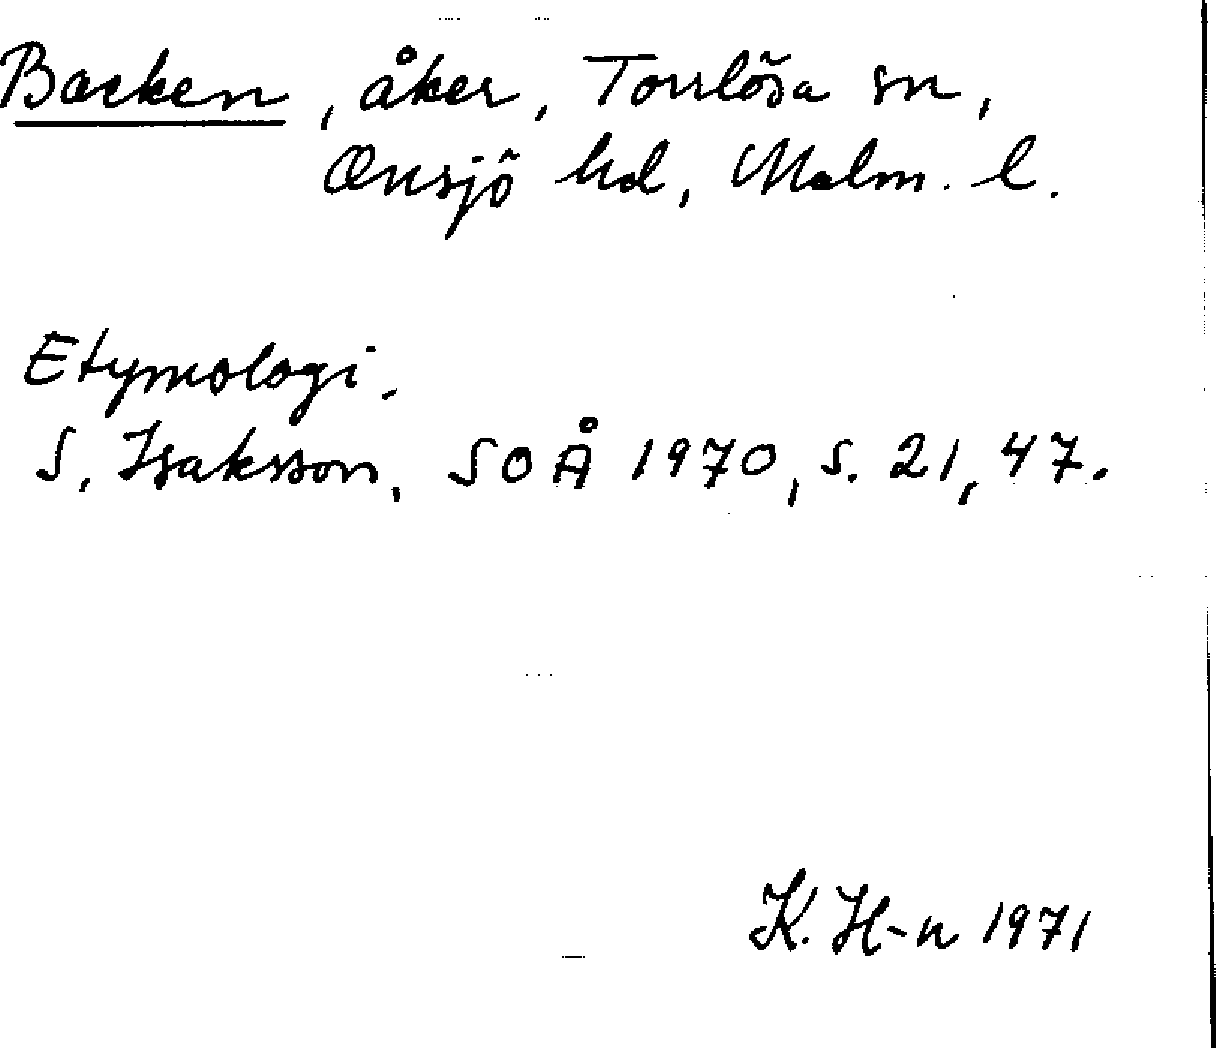 Backen, åker, Torrlösa sn,
Onsjö hd, Malm. l.
Etymologi.
S. Isaksson, SOÅ 1970, s. 21, 47.
K. H-n 1971